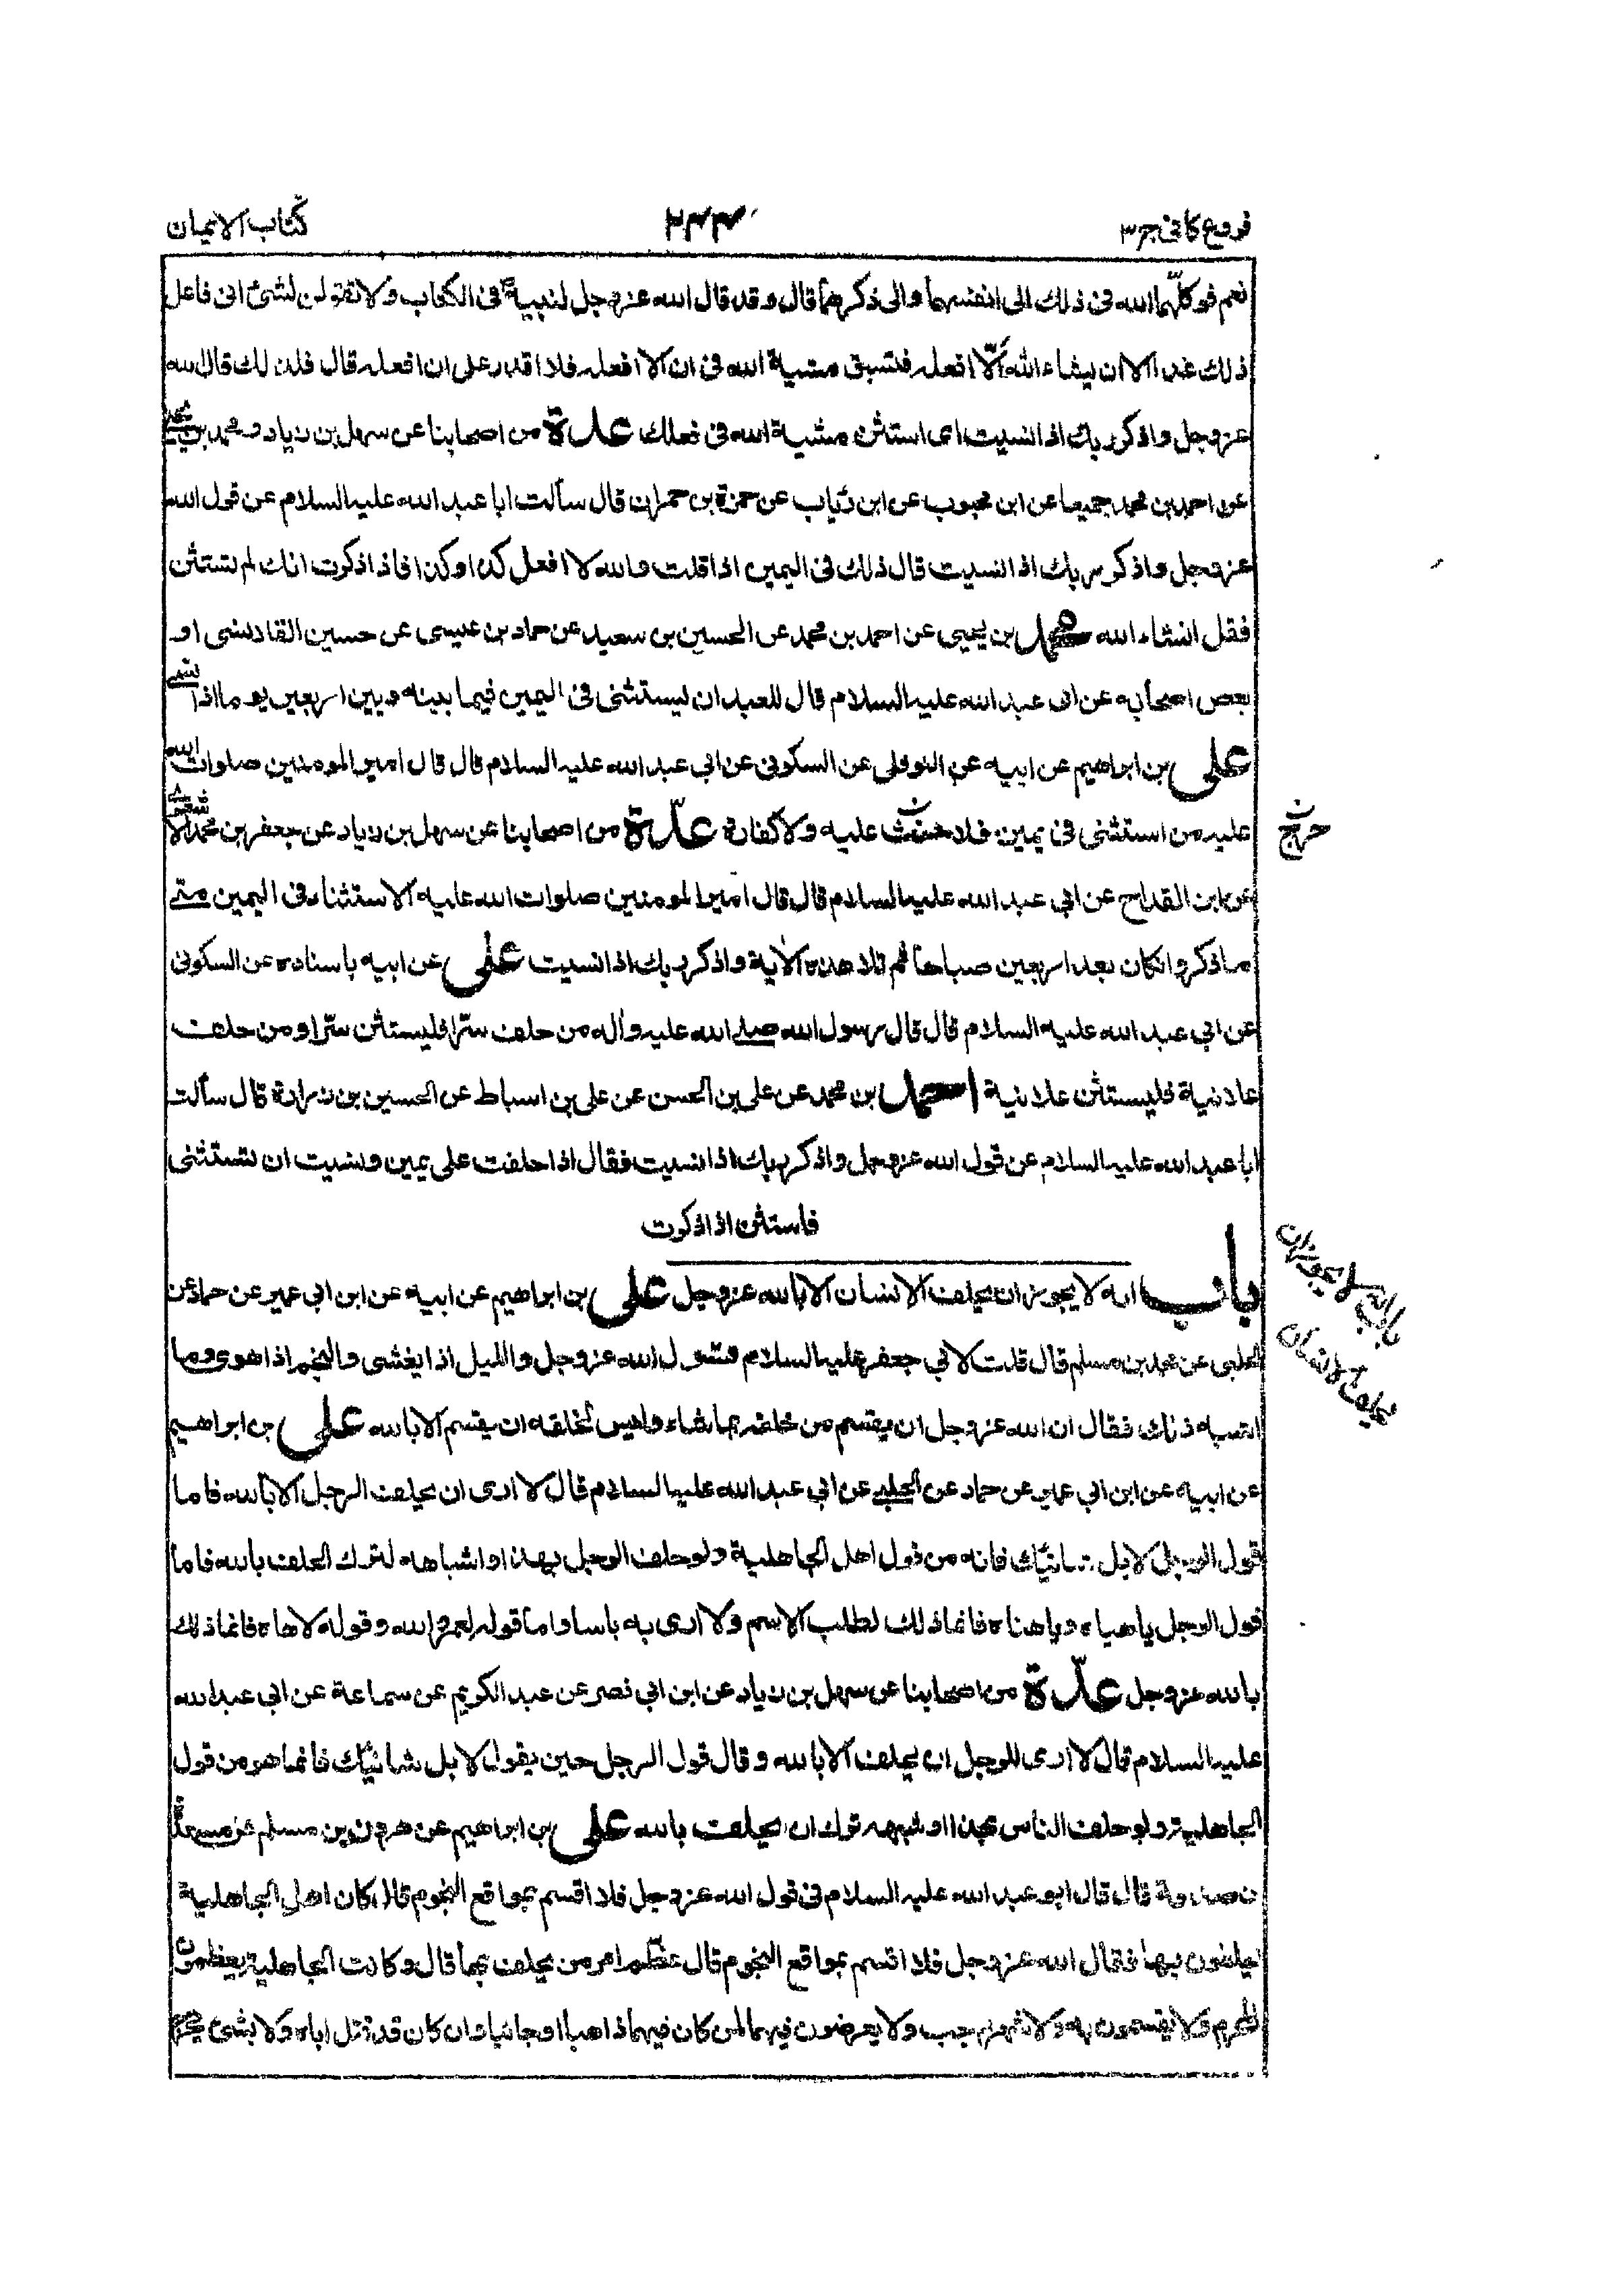 فروع كافى ج ٣
٢٤٤
كتاب الايمان
نعم فوكلهما الله فى ذلك الى انفسهما والى ذكرهما قال وقد قال الله عزوجل لنبيه فى الكتاب ولا تقولن لشئ انى فاعل
ذلك غدا الا ان يشاء الله الا افعله فتسبق مشية الله فى ان لا افعله فلا اقدر على ان افعله قال فلذلك قال الله
عزوجل واذكر ربك اذا نسيت اى استثن مشية الله فى فعلك عدة من اصحابنا عن سهل بن زياد ومحمد بن يحيى
عن احمد بن محمد جميعا عن ابن محبوب عن ابن رئاب عن حمزة بن حمران قال سألت ابا عبد الله عليه السلام عن قول الله
عزوجل واذكر ربك اذا نسيت قال ذلك فى اليمين اذا قلت والله لا افعل كذا وكذا فاذا ذكرت انك لم تستثن
فقل انشاء الله محمد بن يحيى عن احمد بن محمد عن الحسين بن سعيد عن حماد بن عيسى عن حسين القلانسى او
بعض اصحابه عن ابى عبد الله عليه السلام قال للعبد ان يستثنى فى اليمين فيما بينه وبين اربعين يوما اذا نسى
على بن ابراهيم عن ابيه عن النوفلى عن السكونى عن ابى عبد الله عليه السلام قال قال امير المومنين صلوات الله
عليه من استثنى فى يمين فلا حنث عليه ولا كفارة عدة من اصحابنا عن سهل بن زياد عن جعفر بن محمد الاشعرى
حرج ن
عن ابن القداح عن ابى عبد الله عليه السلام قال قال امير المومنين صلوات الله عليه الاستثناء فى اليمين متى
ما ذكر وانكان بعد اربعين صباحا ثم تلا هذه الاية واذكر ربك اذا نسيت على عن ابيه باسناده عن السكونى
عن ابى عبد الله عليه السلام قال قال رسول الله صلى الله عليه واله من حلف سرا فليستثن سرا ومن حلف
علانية فليستثن علانية احمد بن محمد عن على بن الحسن عن على بن اسباط عن الحسين بن زرارة قال سألت
ابا عبد الله عليه السلام عن قول الله عزوجل واذكر ربك اذا نسيت فقال اذا حلفت على يمين ونسيت ان تستثنى
فاستثن اذا ذكرت
باب انه لا يجوز ان يحلف الانسان الا بالله عزوجل على بن ابراهيم عن ابيه عن ابن ابى عمير عن حماد عن
باب انه لا يجوز ان
يحلف الانسان
الحلبى عن محمد بن مسلم قال قلت لابى جعفر عليه السلام قول الله عزوجل والليل اذا يغشى والنجم اذا هوى وما
اشبه ذلك فقال ان الله عزوجل ان يقسم من خلقه بما شاء وليس لخلقه ان يقسم الا بالله على بن ابراهيم
عن ابيه عن ابن ابى عمير عن حماد عن الحلبى عن ابى عبد الله عليه السلام قال لا ارى ان يحلف الرجل الا بالله فاما
قول الرجل لا بل شانيك فانه من قول اهل الجاهلية ولو حلف الرجل بهذا او اشباهه لترك الحلف بالله فاما
قول الرجل يا هياه ويا هناه فانما ذلك لطلب الاسم ولا ارى به باسا واما قوله لعمر الله وقوله لا هاه فانما ذلك
بالله عزوجل عدة من اصحابنا عن سهل بن زياد عن ابن ابى نصر عن عبد الكريم عن سماعة عن ابى عبد الله
عليه السلام قال لا ارى للرجل ان يحلف الا بالله وقال قول الرجل حين يقول لا بل شانيك فانما هو من قول
الجاهلية ولو حلف الناس بهذا او شبهه ترك ان يحلف بالله على بن ابراهيم عن هرون بن مسلم عن مسعدة
بن صدقة قال قال ابو عبد الله عليه السلام فى قول الله عزوجل فلا اقسم بمواقع النجوم قال كان اهل الجاهلية
يحلفون بها فقال الله عزوجل فلا اقسم بمواقع النجوم قال عظم امر من يحلف بها قال وكانت الجاهلية يعظمون
المحرم ولا يقسمون به ولا بشهر رجب ولا يعرضون فيهما لمن كان فيهما ذاهبا او جائيا وان كان قد قتل اباه ولا بشئ